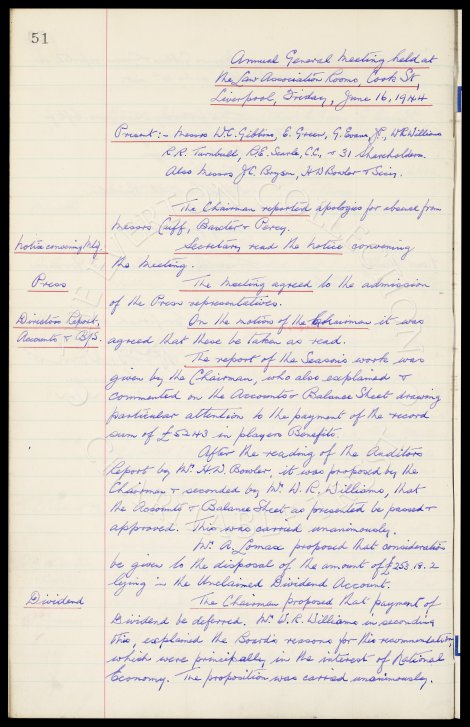 51
Annual General Meeting held at
The Law Association Rooms, Cook St,
Liverpool, Friday, June 16, 1944
Present:- Messrs W.C. Gibbins, E. Green, G. Evans, J.P., W.R. Williams
R.R. Turnbull, R.E. Searle, C.C., & 31 Shareholders.
Also Messrs J.C. Bryson, H.D. Bowler & Sears.
The Chairman reported apologies for absence from
Messrs Cuff, Baxter & Percy.
Notice convening Mtg. Secretary read the notice convening
the meeting.
Press The meeting agreed to the admission
of the Press representatives.
Directors Report, On the motion of the Chairman it was
Accounts & B/S. agreed that these be taken as read.
The report of the Seasons work was
given by the Chairman, who also explained &
commented on the Accounts & Balance Sheet drawing
particular attention to the payment of the record
sum of £5243 in players Benefits.
After the reading of the Auditors
Report by Mr. H.D. Bowler, it was proposed by the
Chairman & seconded by Mr. W.R. Williams, that
the Accounts & Balance Sheet as presented be passed &
approved. This was carried unanimously.
Mr. A. Lomax proposed that consideration
be given to the disposal of the amount of £253.18.2
lying in the Unclaimed Dividend Account.
Dividend The Chairman proposed that payment of
Dividend be deferred. Mr. W.R. Williams in seconding
this, explained the Boards reasons for this recommendation,
which were principally, in the interest of National
Economy. The proposition was carried unanimously.